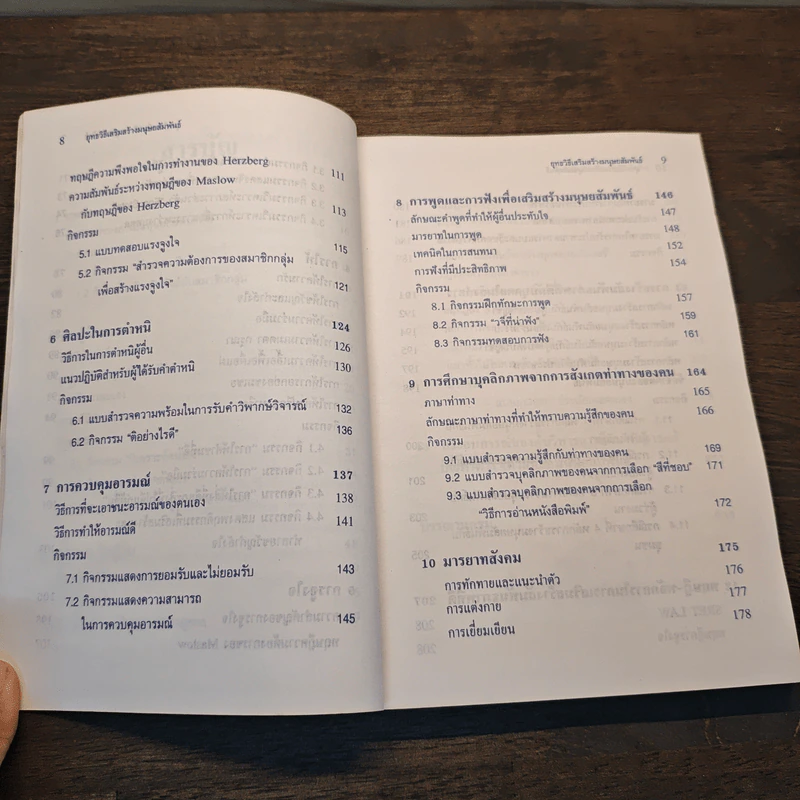 8 ยุทธวิธีเสริมสร้างมนุษยสัมพันธ์
ทฤษฎีความพึงพอใจในการทำงานของ Herzberg 111
ความสัมพันธ์ระหว่างทฤษฎีของ Maslow
กับทฤษฎีของ Herzberg 113
กิจกรรม
5.1 แบบทดสอบแรงจูงใจ 115
5.2 กิจกรรม "สำรวจความต้องการของสมาชิกกลุ่ม
เพื่อสร้างแรงจูงใจ" 121
6 ศิลปะในการตำหนิ 124
วิธีการในการตำหนิผู้อื่น 126
แนวปฏิบัติสำหรับผู้ได้รับคำตำหนิ 130
กิจกรรม
6.1 แบบสำรวจความพร้อมในการรับคำวิพากษ์วิจารณ์ 132
6.2 กิจกรรม "ติอย่างไรดี" 136
7 การควบคุมอารมณ์ 137
วิธีการที่จะเอาชนะอารมณ์ของตนเอง 138
วิธีการทำให้อารมณ์ดี 141
กิจกรรม
7.1 กิจกรรมแสดงการยอมรับและไม่ยอมรับ 143
7.2 กิจกรรมแสดงความสามารถ
ในการควบคุมอารมณ์ 145
ยุทธวิธีเสริมสร้างมนุษยสัมพันธ์ 9
8 การพูดและการฟังเพื่อเสริมสร้างมนุษยสัมพันธ์ 146
ลักษณะคำพูดที่ทำให้ผู้อื่นประทับใจ 147
มารยาทในการพูด 148
เทคนิคในการสนทนา 152
การฟังที่มีประสิทธิภาพ 154
กิจกรรม
8.1 กิจกรรมฝึกทักษะการพูด 157
8.2 กิจกรรม "วจีที่น่าฟัง" 159
8.3 กิจกรรมทดสอบการฟัง 161
9 การศึกษาบุคลิกภาพจากการสังเกตท่าทางของคน 164
ภาษาท่าทาง 165
ลักษณะภาษาท่าทางที่ทำให้ทราบความรู้สึกของคน 166
กิจกรรม
9.1 แบบสำรวจความรู้สึกกับท่าทางของคน 169
9.2 แบบสำรวจบุคลิกภาพของคนจากการเลือก "สีที่ชอบ" 171
9.3 แบบสำรวจบุคลิกภาพของคนจากการเลือก
"วิธีการอ่านหนังสือพิมพ์" 172
10 มารยาทสังคม 175
การทักทายและแนะนำตัว 176
การแต่งกาย 177
การเยี่ยมเยียน 178